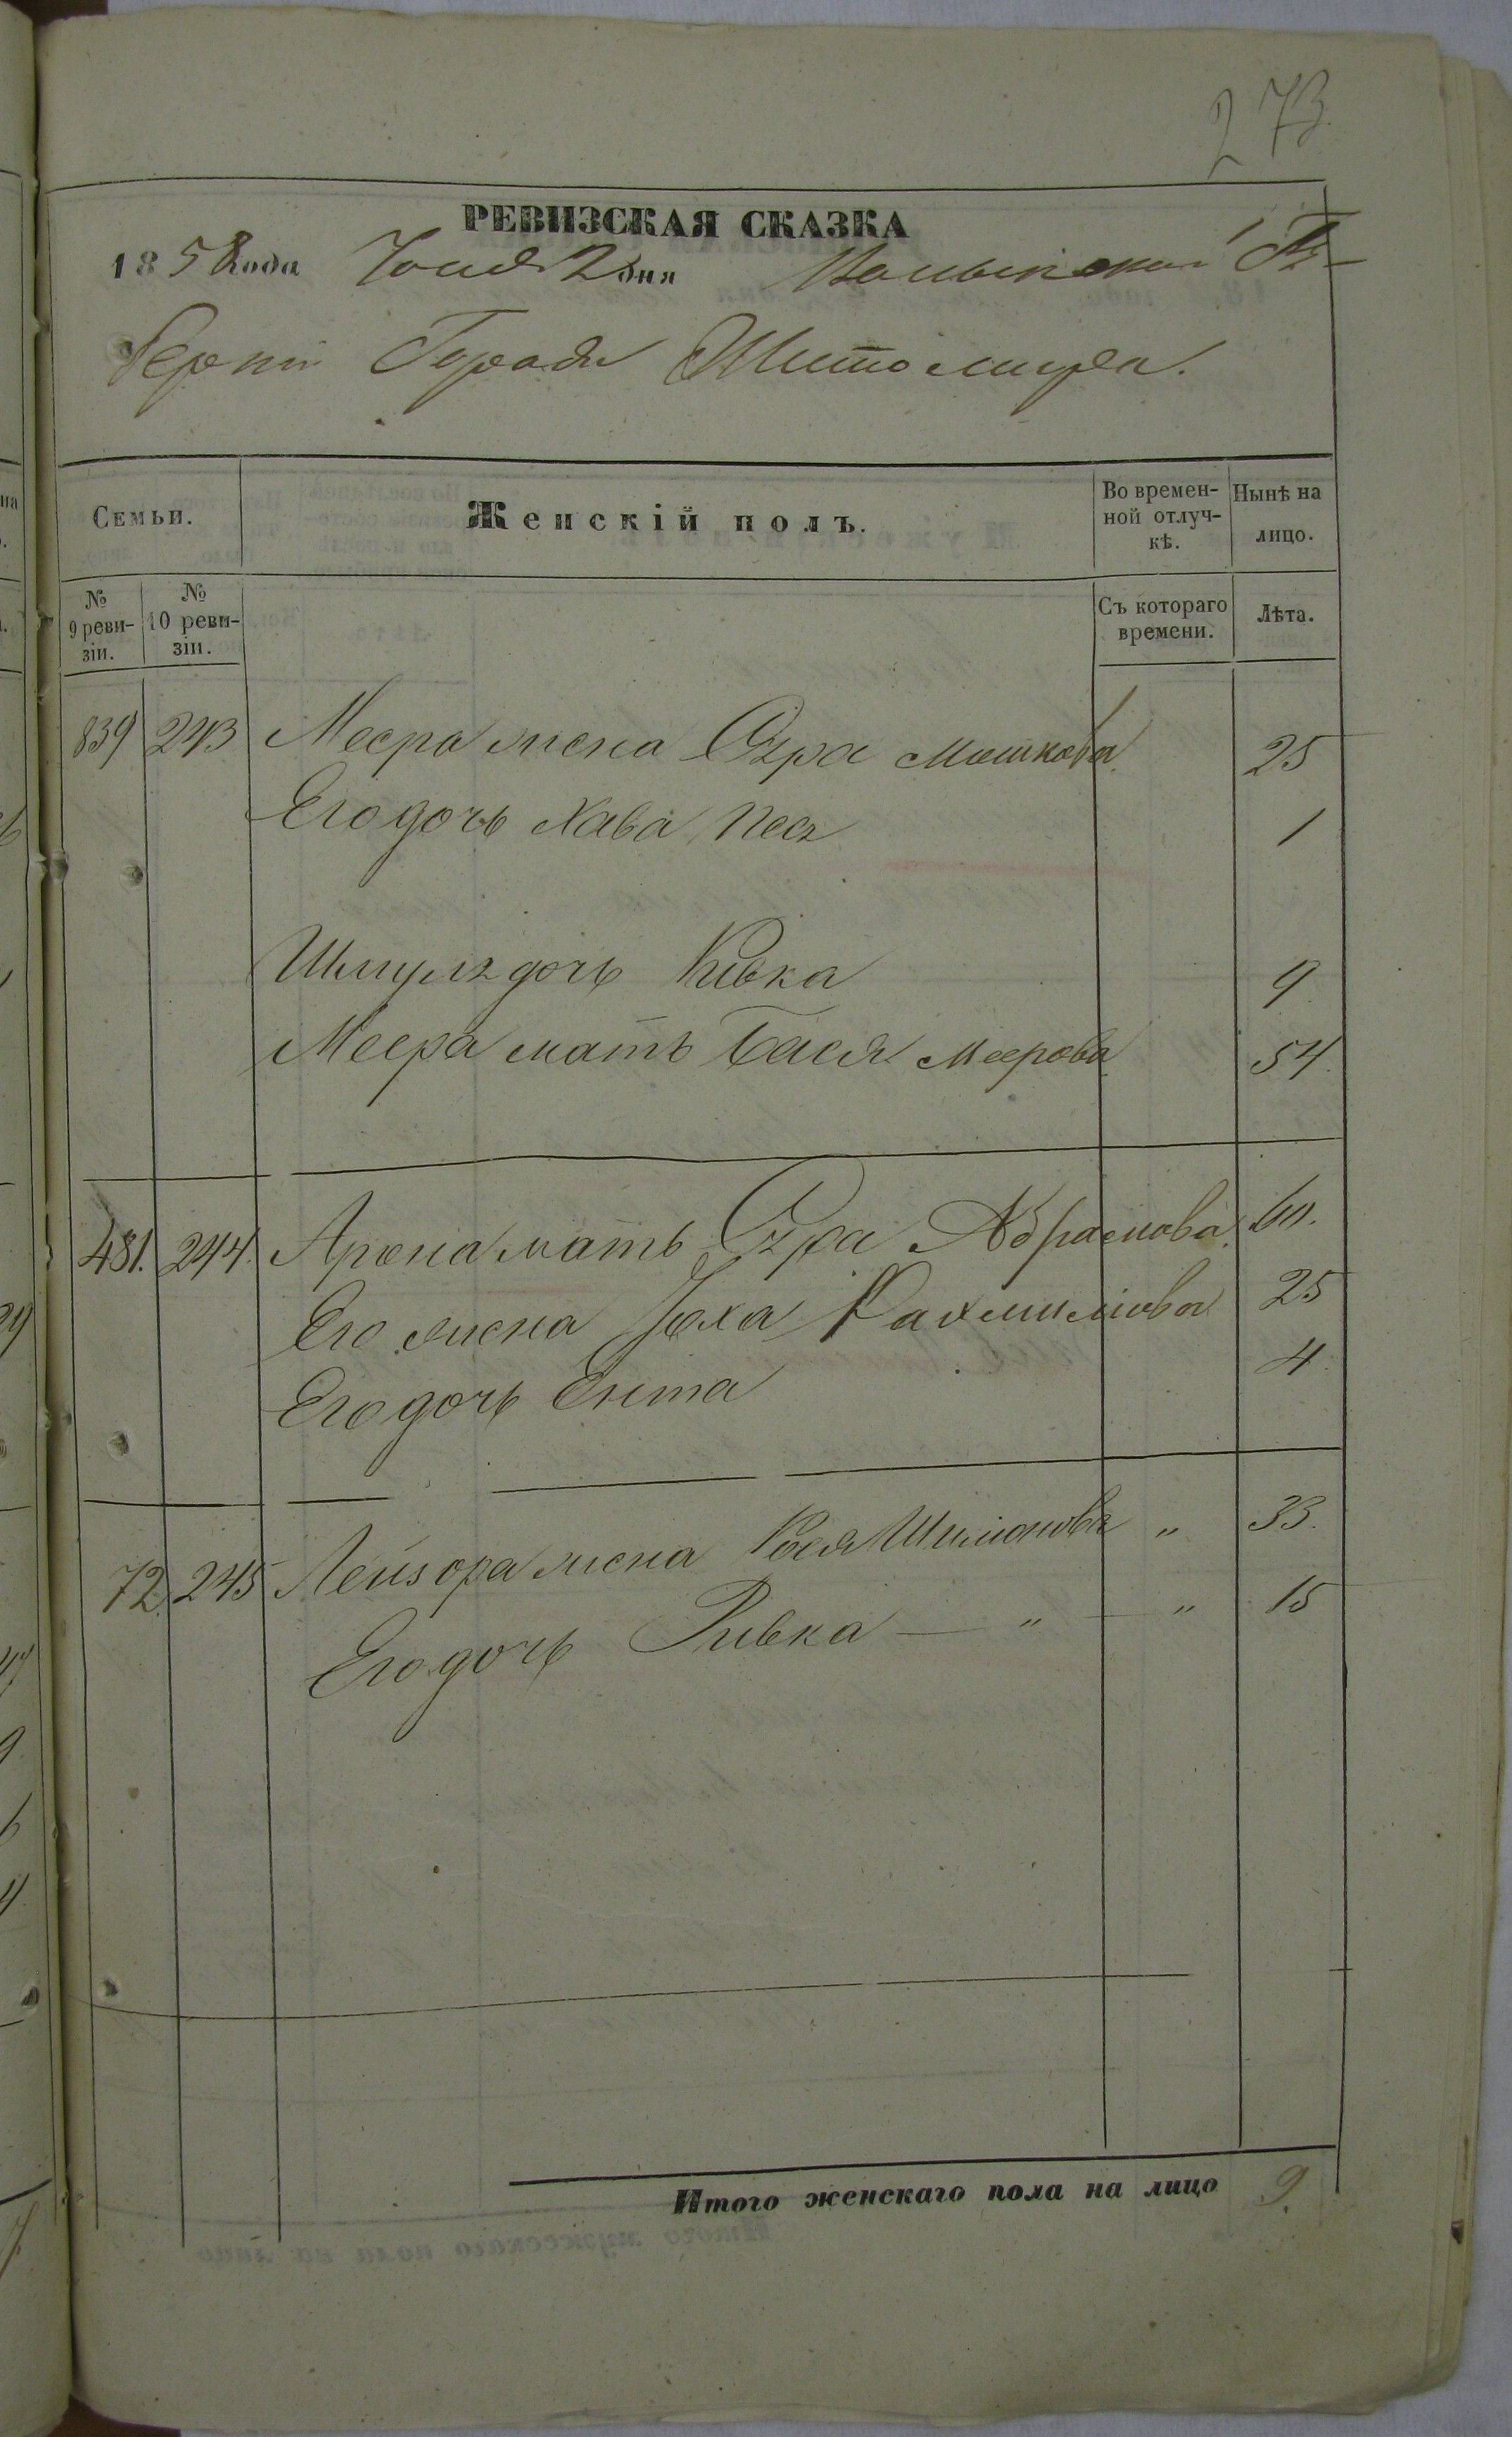 273.
РЕВИЗСКАЯ СКАЗКА
1858 года Юня 2 дня Волынской Гу-
берніи Города Житомира.
Семьи.
Женскій полъ.
Во времен-
ной отлуч-
кѣ.
Нынѣ на
лицо.
№
9 реви-
зіи.
№
10 реви-
зіи.
Съ котораго
времени.
Лѣта.
839 243 Меера жена Сура Мошкова 25
Его дочь Хава Песя 1
Шмуля дочь Ривка 9
Меера мать Бася Меерова 54
481. 244. Арона мать Сура Абрамова. 60.
Его жена Рахмилова 25
Его дочь Ента 4
72. 245 Лейзора жена Рося Шлиомова „ 33.
Его дочь Ривка — „ — „ 15
Итого женскаго пола на лицо 9.